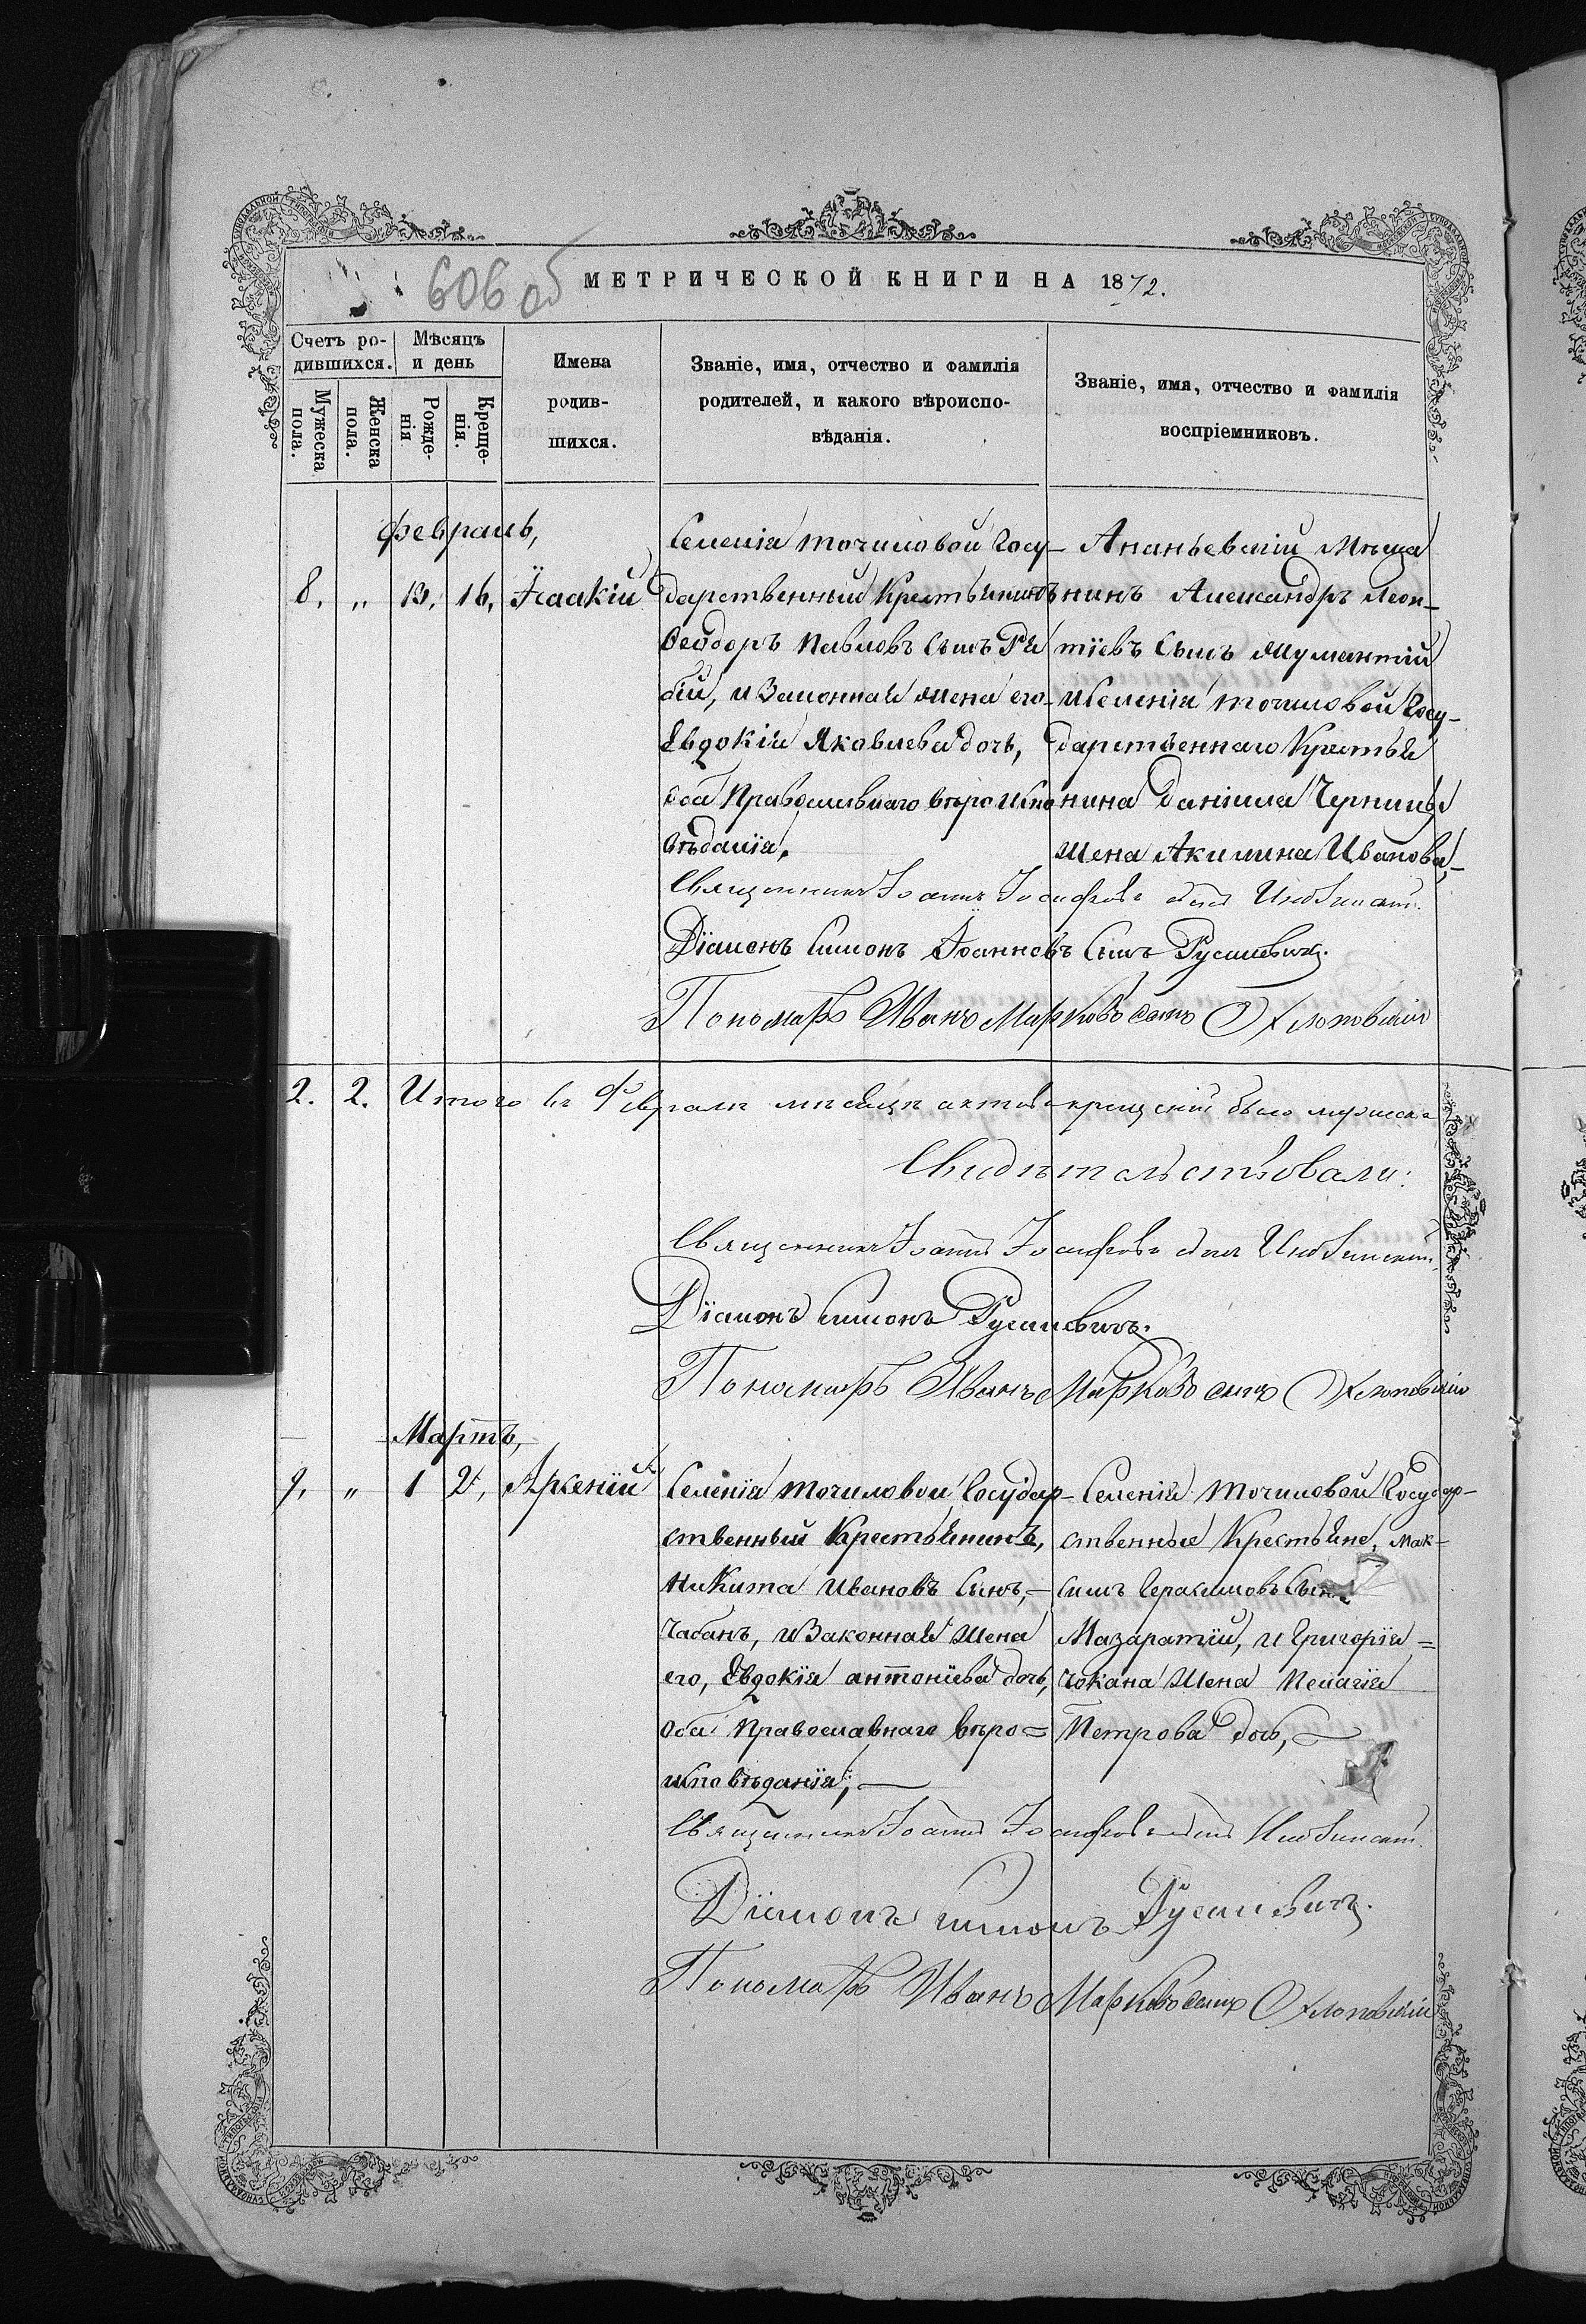 606 об
МЕТРИЧЕСКОЙ КНИГИ НА 1872.
Счетъ ро-
дившихся.
Мѣсяцъ
и день
Мужеска
пола.
Женска
пола.
Рожде-
нія
Креще-
нія.
Имена
родив-
шихся.
Званіе, имя, отчество и фамилія
родителей, и какого вѣроиспо-
вѣданія.
Званіе, имя, отчество и фамилія
воспріемниковъ.
Февраль,
8. „ 13, 16, Їсаакій
Селенія Точиловой Госу-
дарственный Крестьянинъ
Ѳеодоръ Павловъ Сынъ Ра
бій, и Законная жена его
Евдокія Яковлева дочь,
оба Православнаго вѣроиспо
вѣданія.
Ананьевскій Мѣща
нинъ Александръ Леон-
тїевъ Сынъ
и Селенія Точиловой Госу-
дарственнаго Крестья
нина Даніила
жена Акилина Иванова,
Священникъ Іоаннъ Іосифовъ сынъ
Дїаконъ Симонъ Іоанновъ Сынъ Русаневичъ.
Пономарь Иванъ Марковъ сынъ Хлоповскій
2. 2. Итого въ Февралѣ мѣсяцѣ актовъ крещеній было мужеска
Свидѣтельствовали:
Священникъ Іоаннъ Іосифовъ сынъ
Дїаконъ Симонъ Русаневичъ.
Пономарь Иванъ Марковъ сынъ Хлоповскій
Мартъ,
9, „ 1 2, Арсеній
Селенія Точиловой Государ-
ственный Крестьянинъ,
Никита Ивановъ Сынъ, —
Чабанъ, и Законная жена
его, Евдокія Антонїева дочь,
оба Православнаго вѣро=
исповѣданїя, —
Селенія Точиловой Государ-
ственные Крестьяне, Мак-
симъ Герасимовъ Сынъ
Мазаратїй, и Григорїя =
Чокана жена Пелагїя
Петрова дочь, —
Священникъ Іоаннъ Іосифовъ сынъ
Дїаконъ Симонъ Русаневичъ.
Пономарь Иванъ Марковъ сынъ Хлоповскій